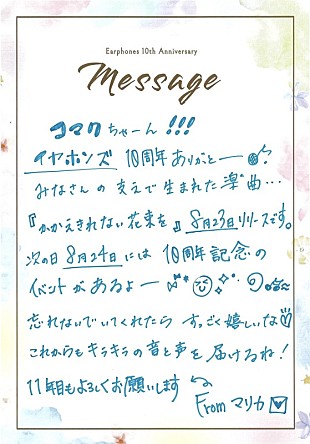 Earphones 10th Anniversary
Message
コマクちゃーん!!!
イヤホンズ 10周年ありがとー
みなさんの支えで生まれた楽曲…
『かかえきれない花束を』8月23日リリースです。
次の日8月24日には10周年記念の
イベントがあるよー
忘れないでいてくれたら すっごく嬉しいな
これからもキラキラの音と声を届けるね!
11年目もよろしくお願いします
From マリカ